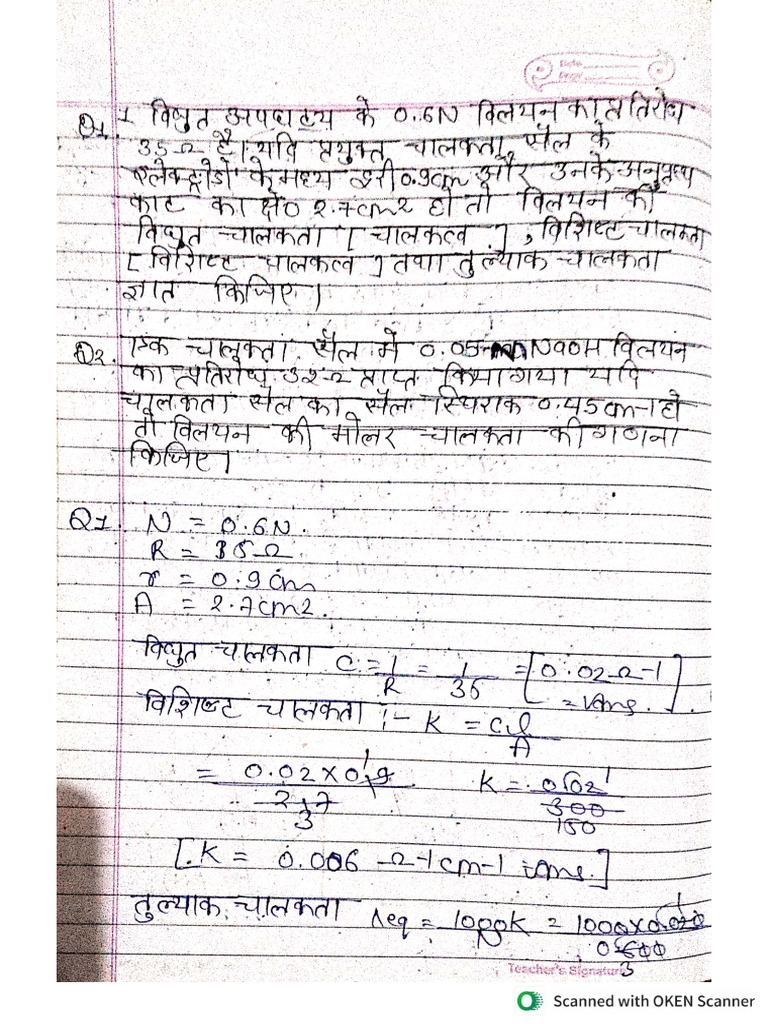 Date
Page
Q1. 1 विधुत अपघट्य के 0.6N विलयन का प्रतिरोध
35Ω है। यदि प्रयुक्त चालकता सैल के
एलेक्ट्रोडो के मध्य दूरी 0.9cm और उनके अनुप्रस्थ
काट का क्षे0 2.7cm2 हो तो विलयन की
विधुत चालकता [ चालकत्व ], विशिष्ट चालकता
[ विशिष्ट चालकत्व ] तथा तुल्यांक चालकता
ज्ञात किजिए।
Q2. एक चालकता सैल में 0.05 विलयन
का प्रतिरोध 32Ω प्राप्त किया गया यदि
चालकता सैल का सैल स्थिरांक 0.45cm-1 हो
तो विलयन की मोलर चालकता की गणना
किजिए।
Q1. N = 0.6N.
R = 35Ω
r = 0.9cm
A = 2.7cm2.
विधुत चालकता C = 1/R = 1/35 = [0.02Ω-1 = Ans.]
विशिष्ट चालकता :- K = Cl/A
= 0.02×0.9/2.7 3 K = 0.02 1/300 150
[K = 0.006 Ω-1cm-1 Ans.]
तुल्यांक चालकता Λeq = 1000K/N = 1000×
Teacher's Signature
3
Scanned with OKEN Scanner